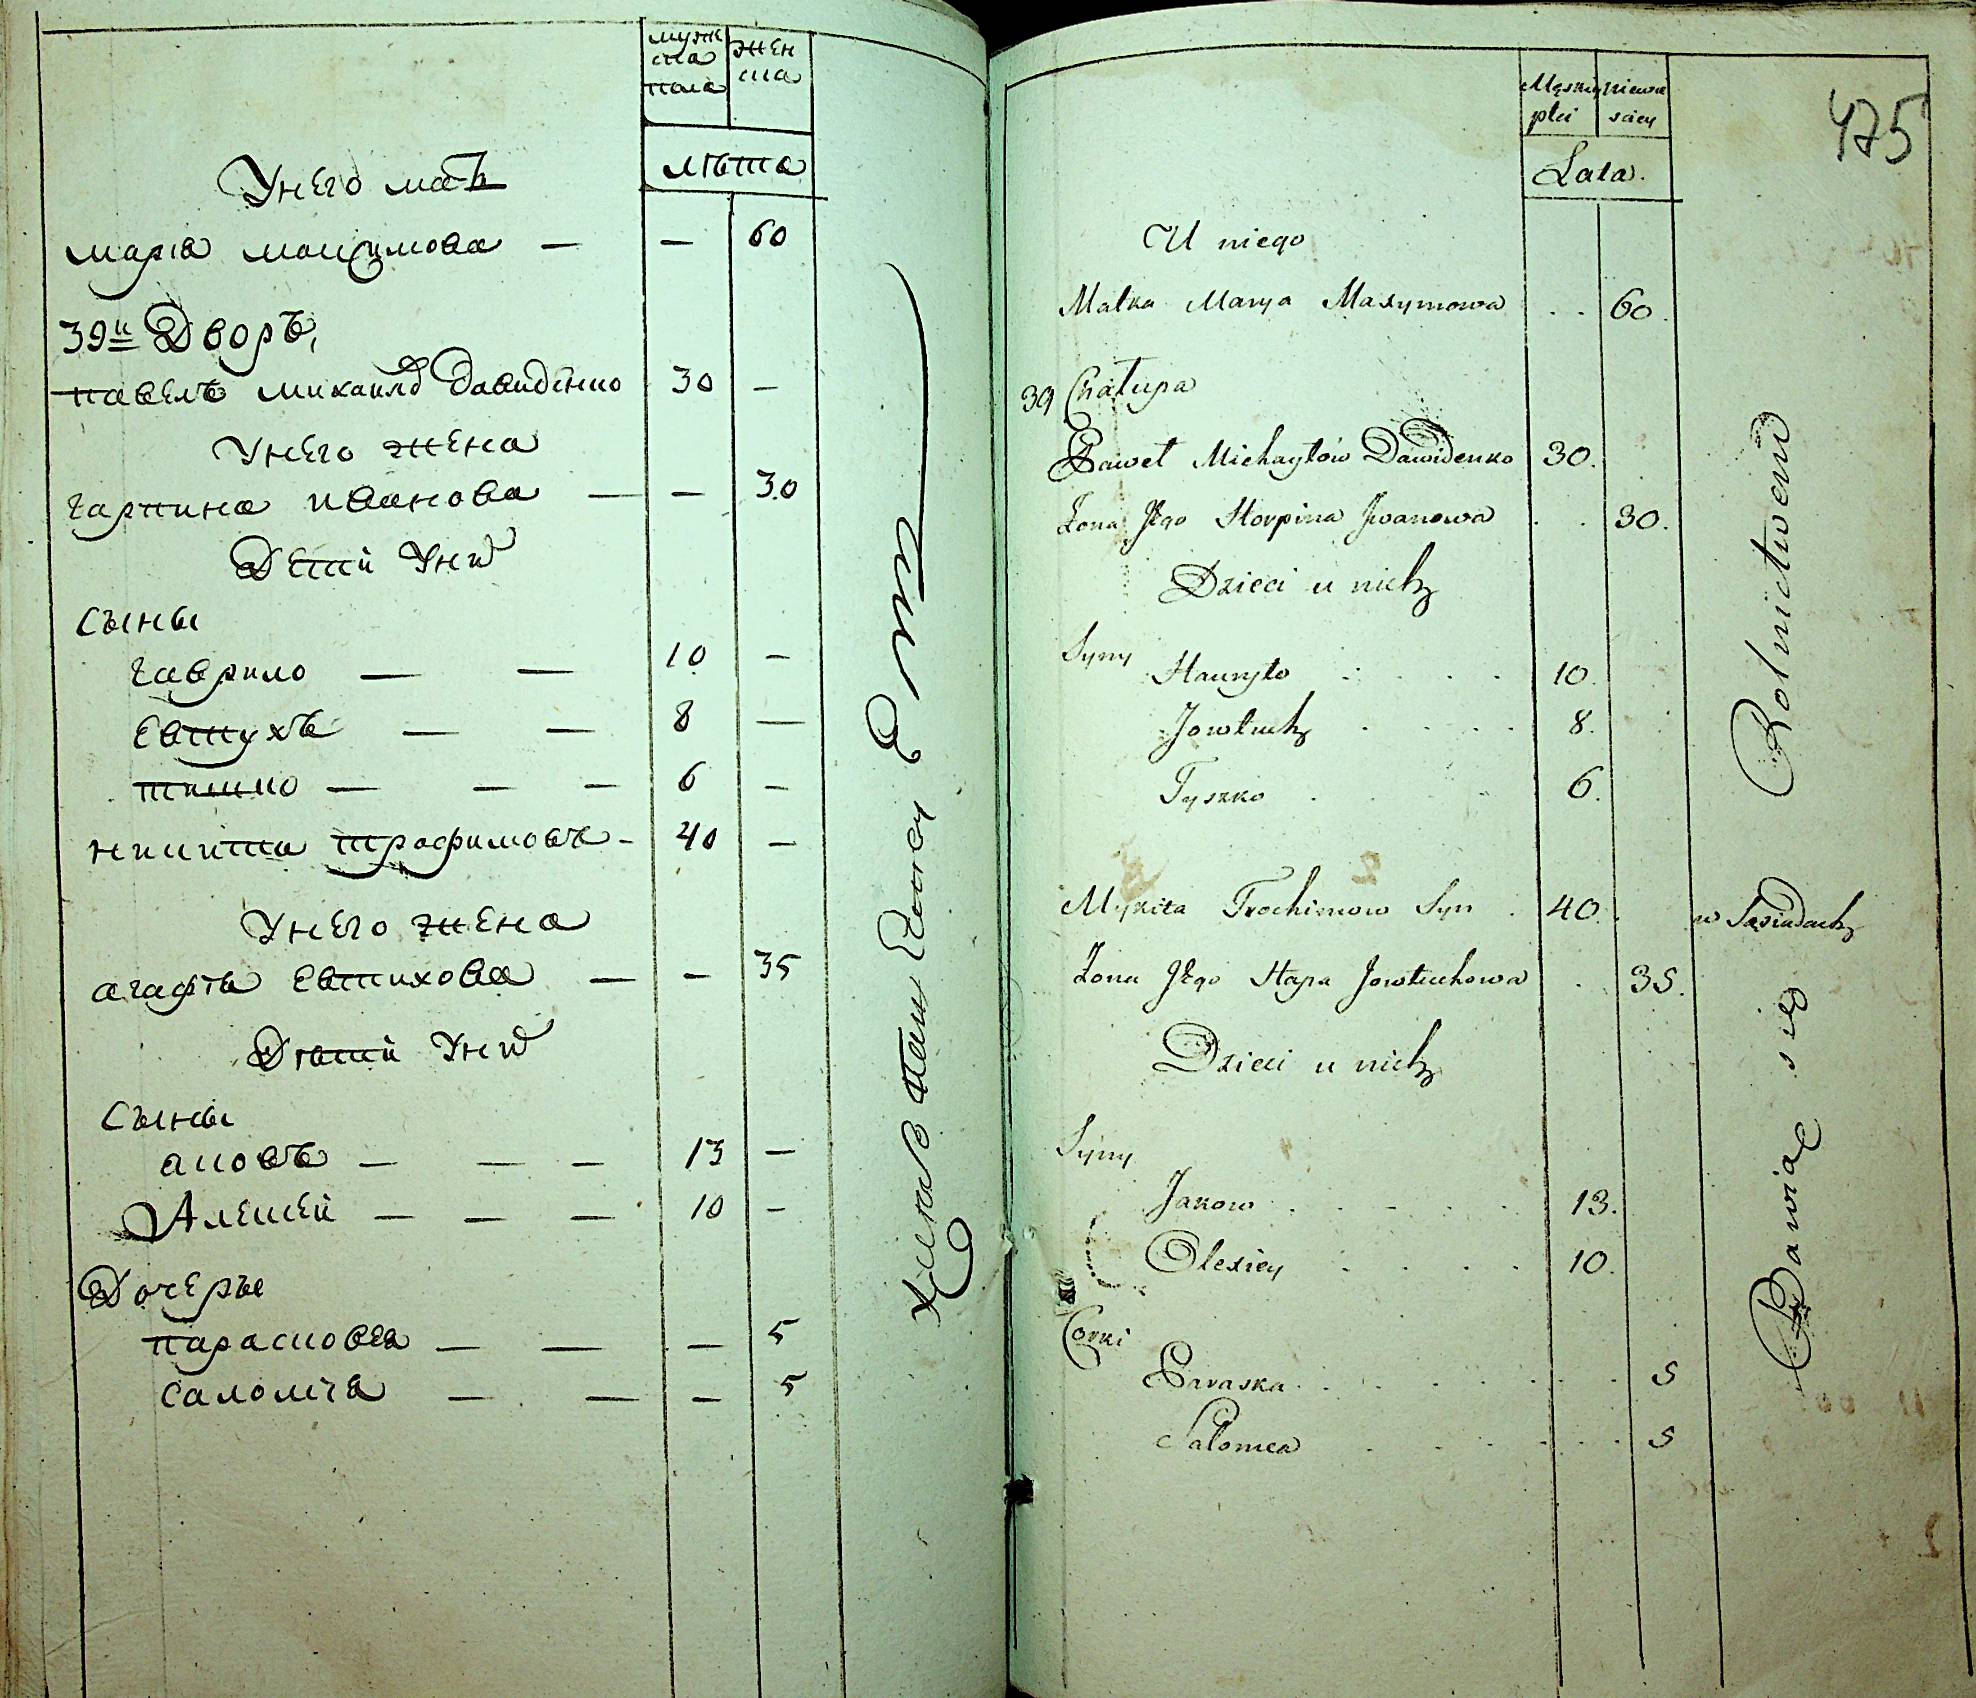 мужеска пола
женска
лѣта
У него мать
марія максимова — — 60
39й Дворъ,
павелъ михаилов давиденко 30 —
У него жена
гарпина иванова — — 30
Дети у них
Сыны
гаврило — — 10 —
Евтухъ — — 8 —
тишко — — — 6 —
никита трофимовъ - 40 —
У него жена
агафія Евтихова — — 35
Дѣти у них
Сыны
яковъ — — — 13 —
Алексей — — — 10 —
Дочерьи
парасковея — — — 5
саломія — — — 5
475
Męskiey płci
niewiesciey
Lata.
U niego
Matka Marya Maxymowa . . 60.
39 Chałupa
Paweł Michayłów Dawidenko 30.
Żona Jego Horpina Jwanowa . . 30.
Dzieci u nich
Syny
Hauryło . . . . 10.
Jowtuch . . . . 8.
Tyszko . . . 6.
Mykita Trochimow Syn . 40. w Sąsiadach
Żona Jego Hapa Jowtuchowa . 35.
Dzieci u nich
Syny
Jakow . . . . . 13.
Olexiey . . . . 10.
Corki
Paraska . . . . . . . 5
Salomea . . . . . . 5
Bawią się Rolnictwem